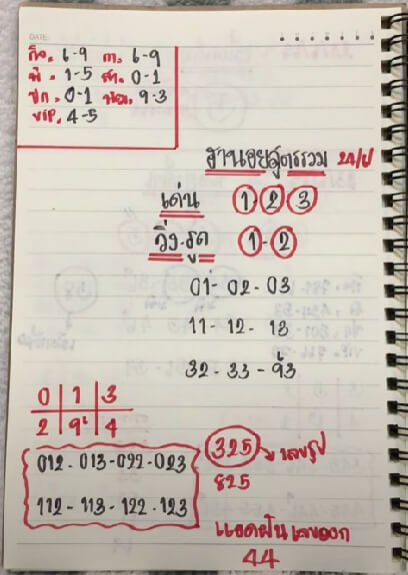 DATE:
กิจ. 6-9 ก. 6-9
พิ. 1-5 ส. 0-1
ปก. 0-1 9-3
VIP. 4-5
ฮานอยสูตรรวม
เด่น 1-2-3
วิ่ง-รูด 1-2
01-02-03
11-12-13
32-33-93
0 1 3
2 9 4
325 > เลขรูป
825
012-013-022-023
112-113-122-123
แอดฝันเลขออก
44